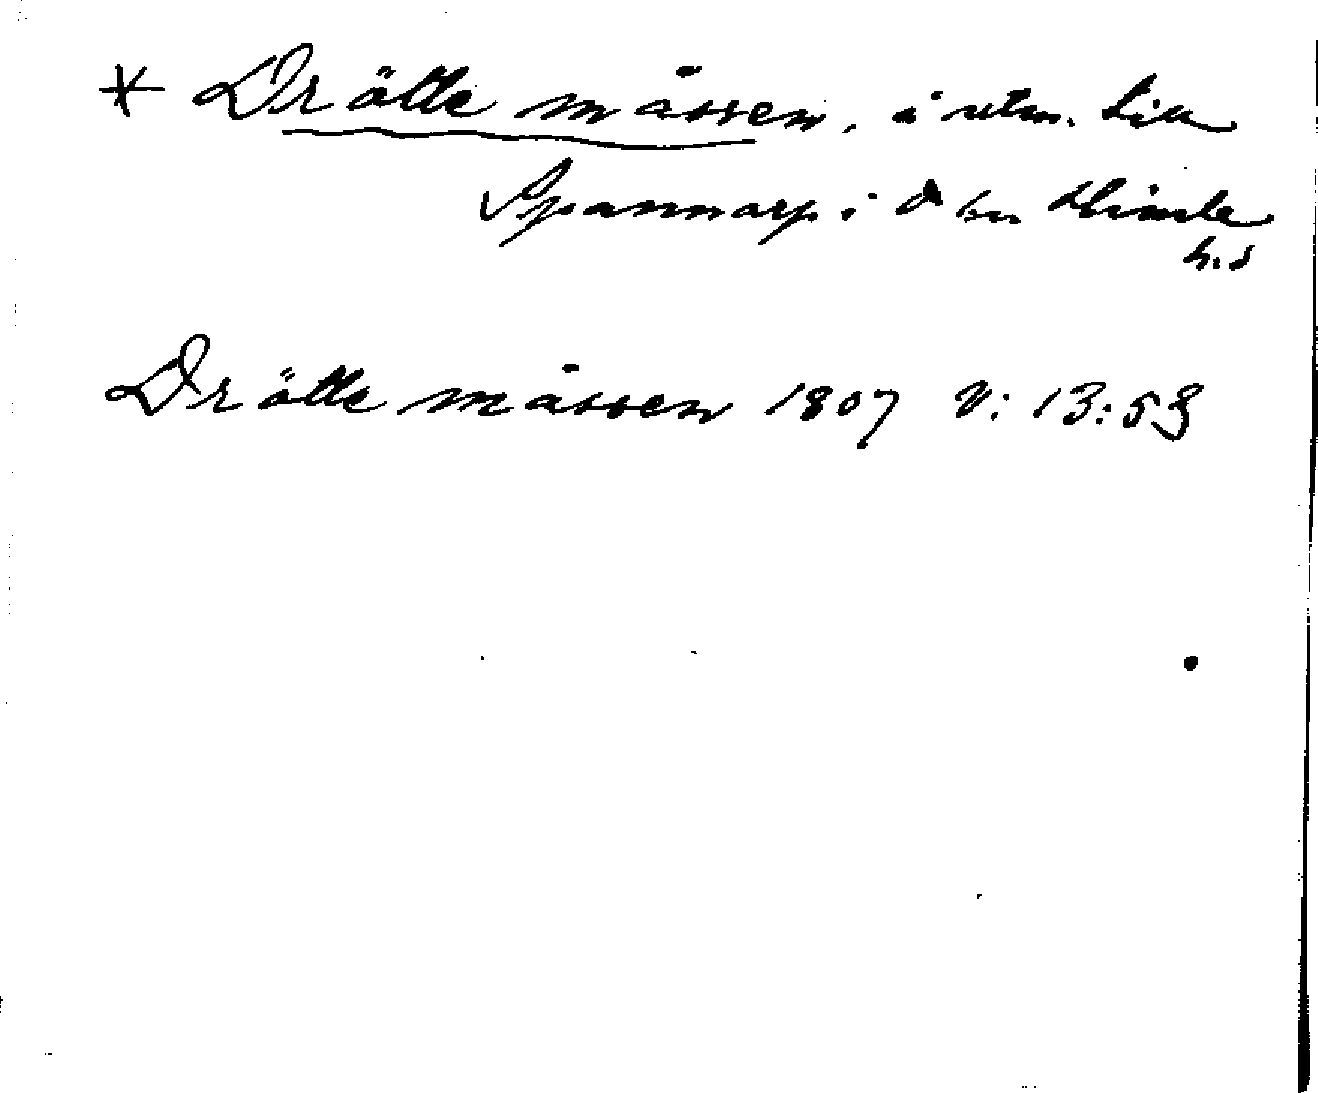 * Drätte mässen, i utm. till
Spannarp i sn Himle
h.d
Drätte mässen 1807 V: 13:53